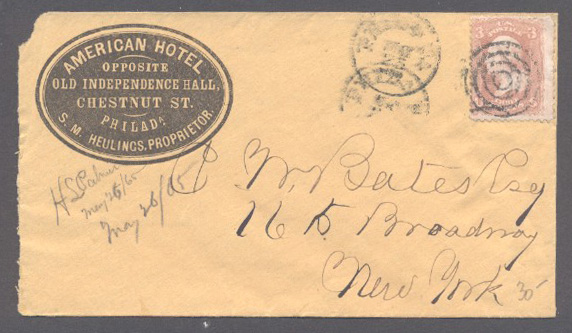 AMERICAN HOTEL
OPPOSITE
OLD INDEPENDENCE HALL,
CHESTNUT ST.
PHILADA
S. M. HEULINGS, PROPRIETOR.
3 3
U.S.
POSTAGE
May 26/65
May 26/65
C W. Bates Esq
Broadway
New York
30